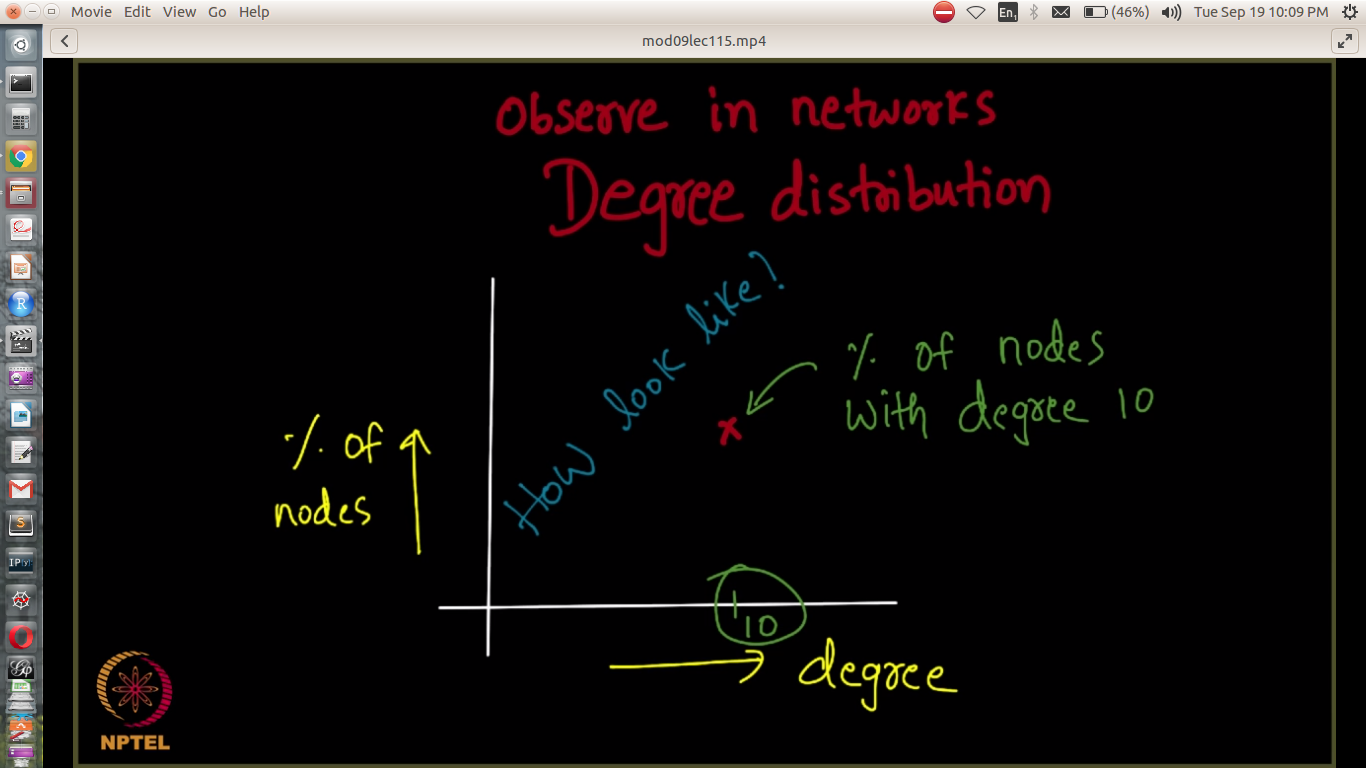 Movie Edit View Go Help
En1
(46%)
Tue Sep 19 10:09 PM
mod09lec115.mp4
Observe in networks
Degree distribution
How look like?
% of nodes
with degree 10
% of
nodes
10
degree
NPTEL
R
S
IP[y]:
Gp